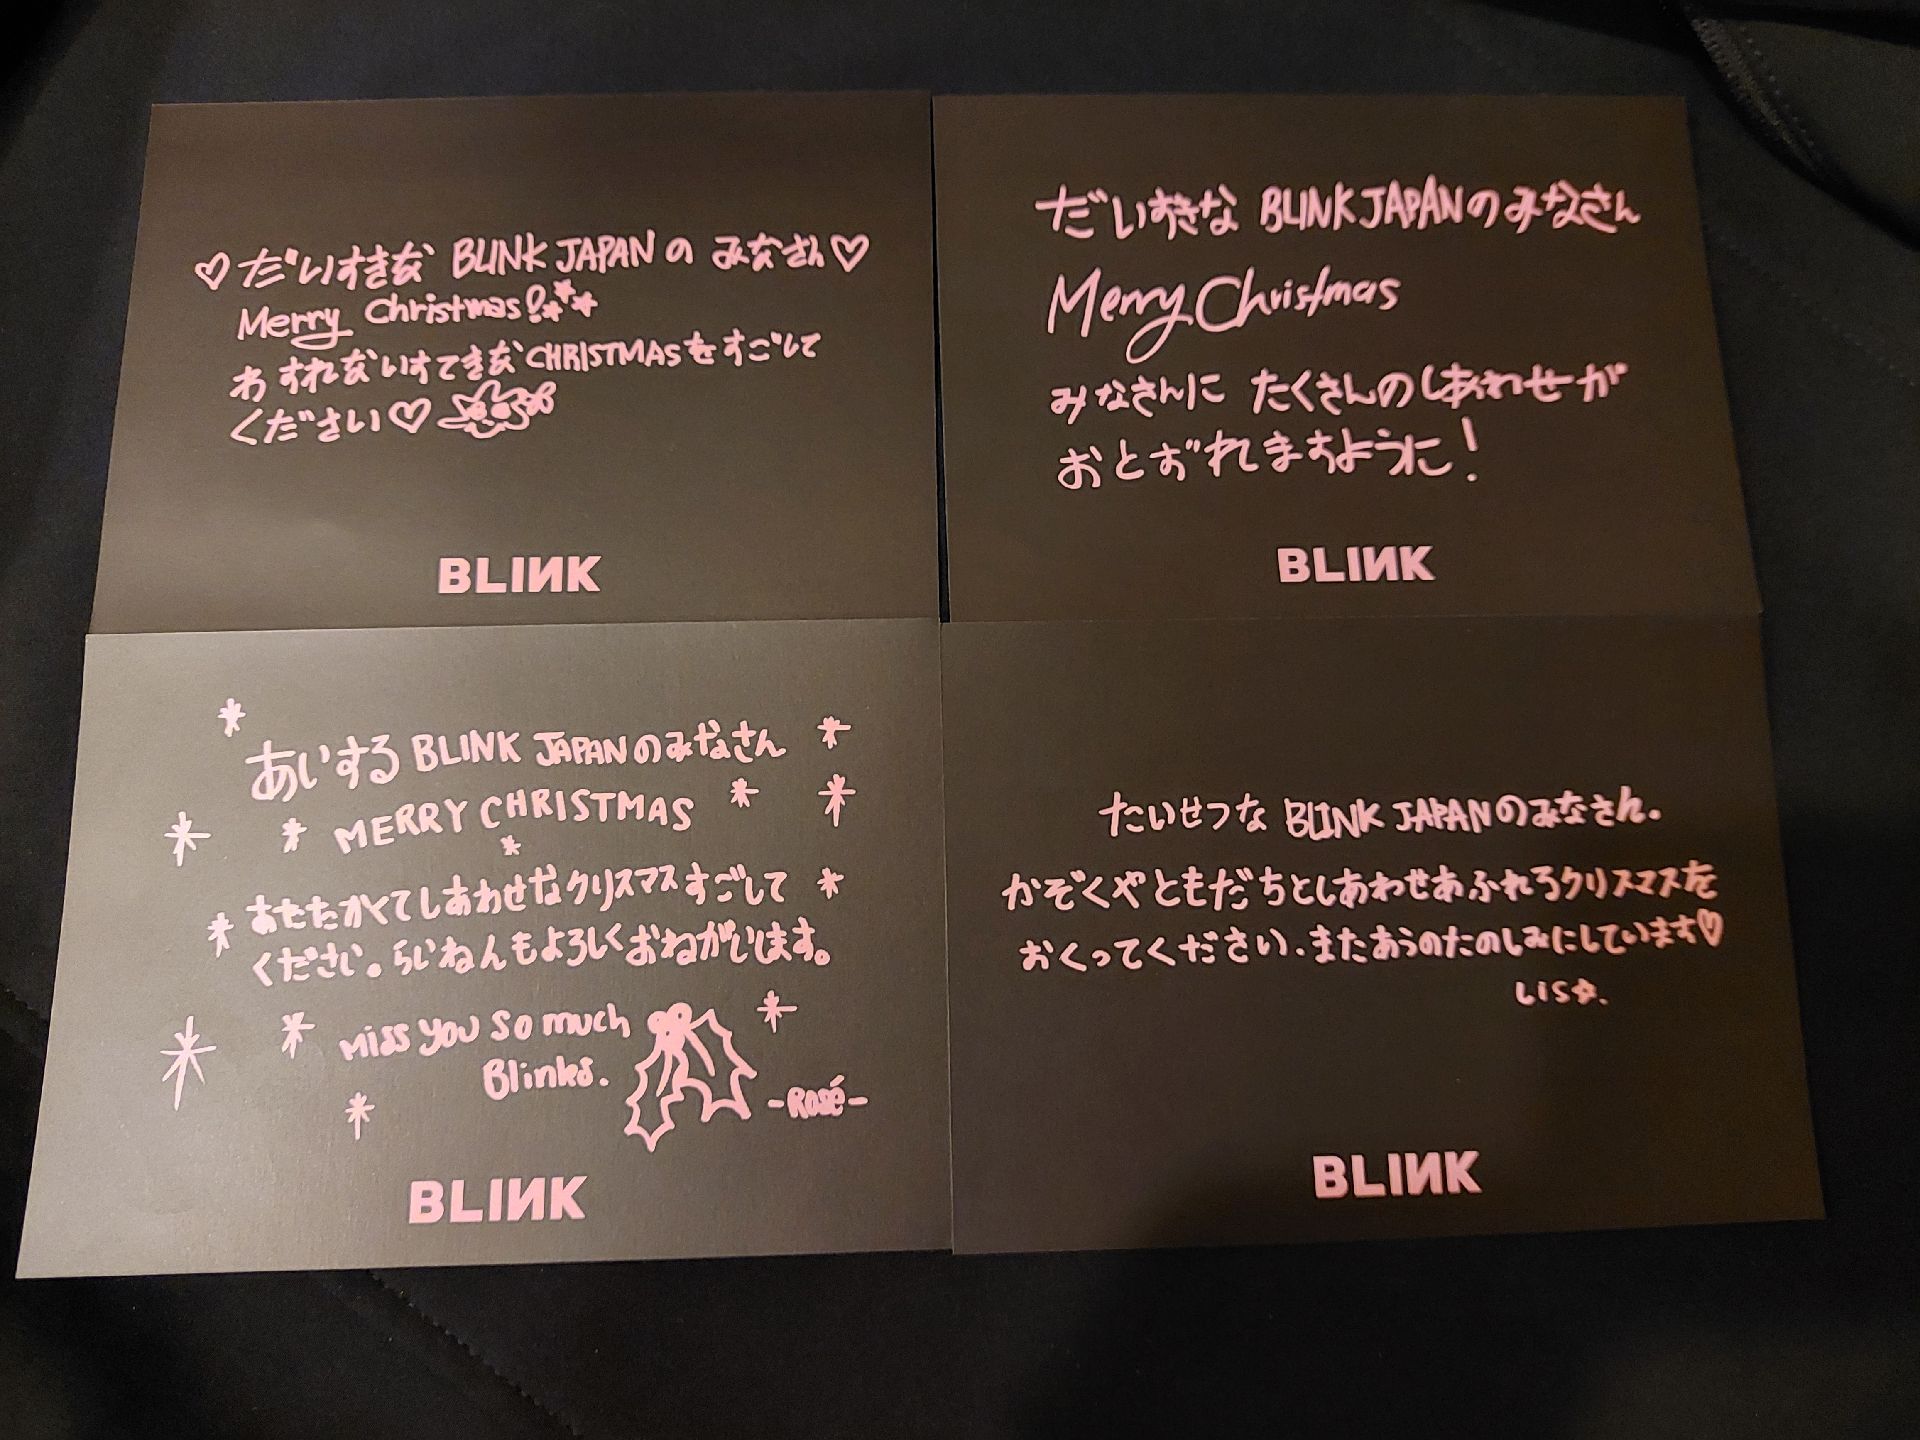 ♡だいすきな BLINK JAPANの みなさん♡
Merry Christmas!
わすれないすてきなCHRISTMASをすごして
ください♡
BLINK
だいすきな BLINK JAPANのみなさん
Merry Christmas
みなさんに たくさんのしあわせが
おとずれますように!
BLINK
あいする BLINK JAPANのみなさん
MERRY CHRISTMAS
あたたかくてしあわせなクリスマスすごして
ください。らいねんもよろしくおねがいします。
miss you so much
Blinks.
-Rosé-
BLINK
たいせつな BLINK JAPANのみなさん.
かぞくやともだちとしあわせあふれるクリスマスを
おくってください.またあうのたのしみにしています♡
LIS☆.
BLINK